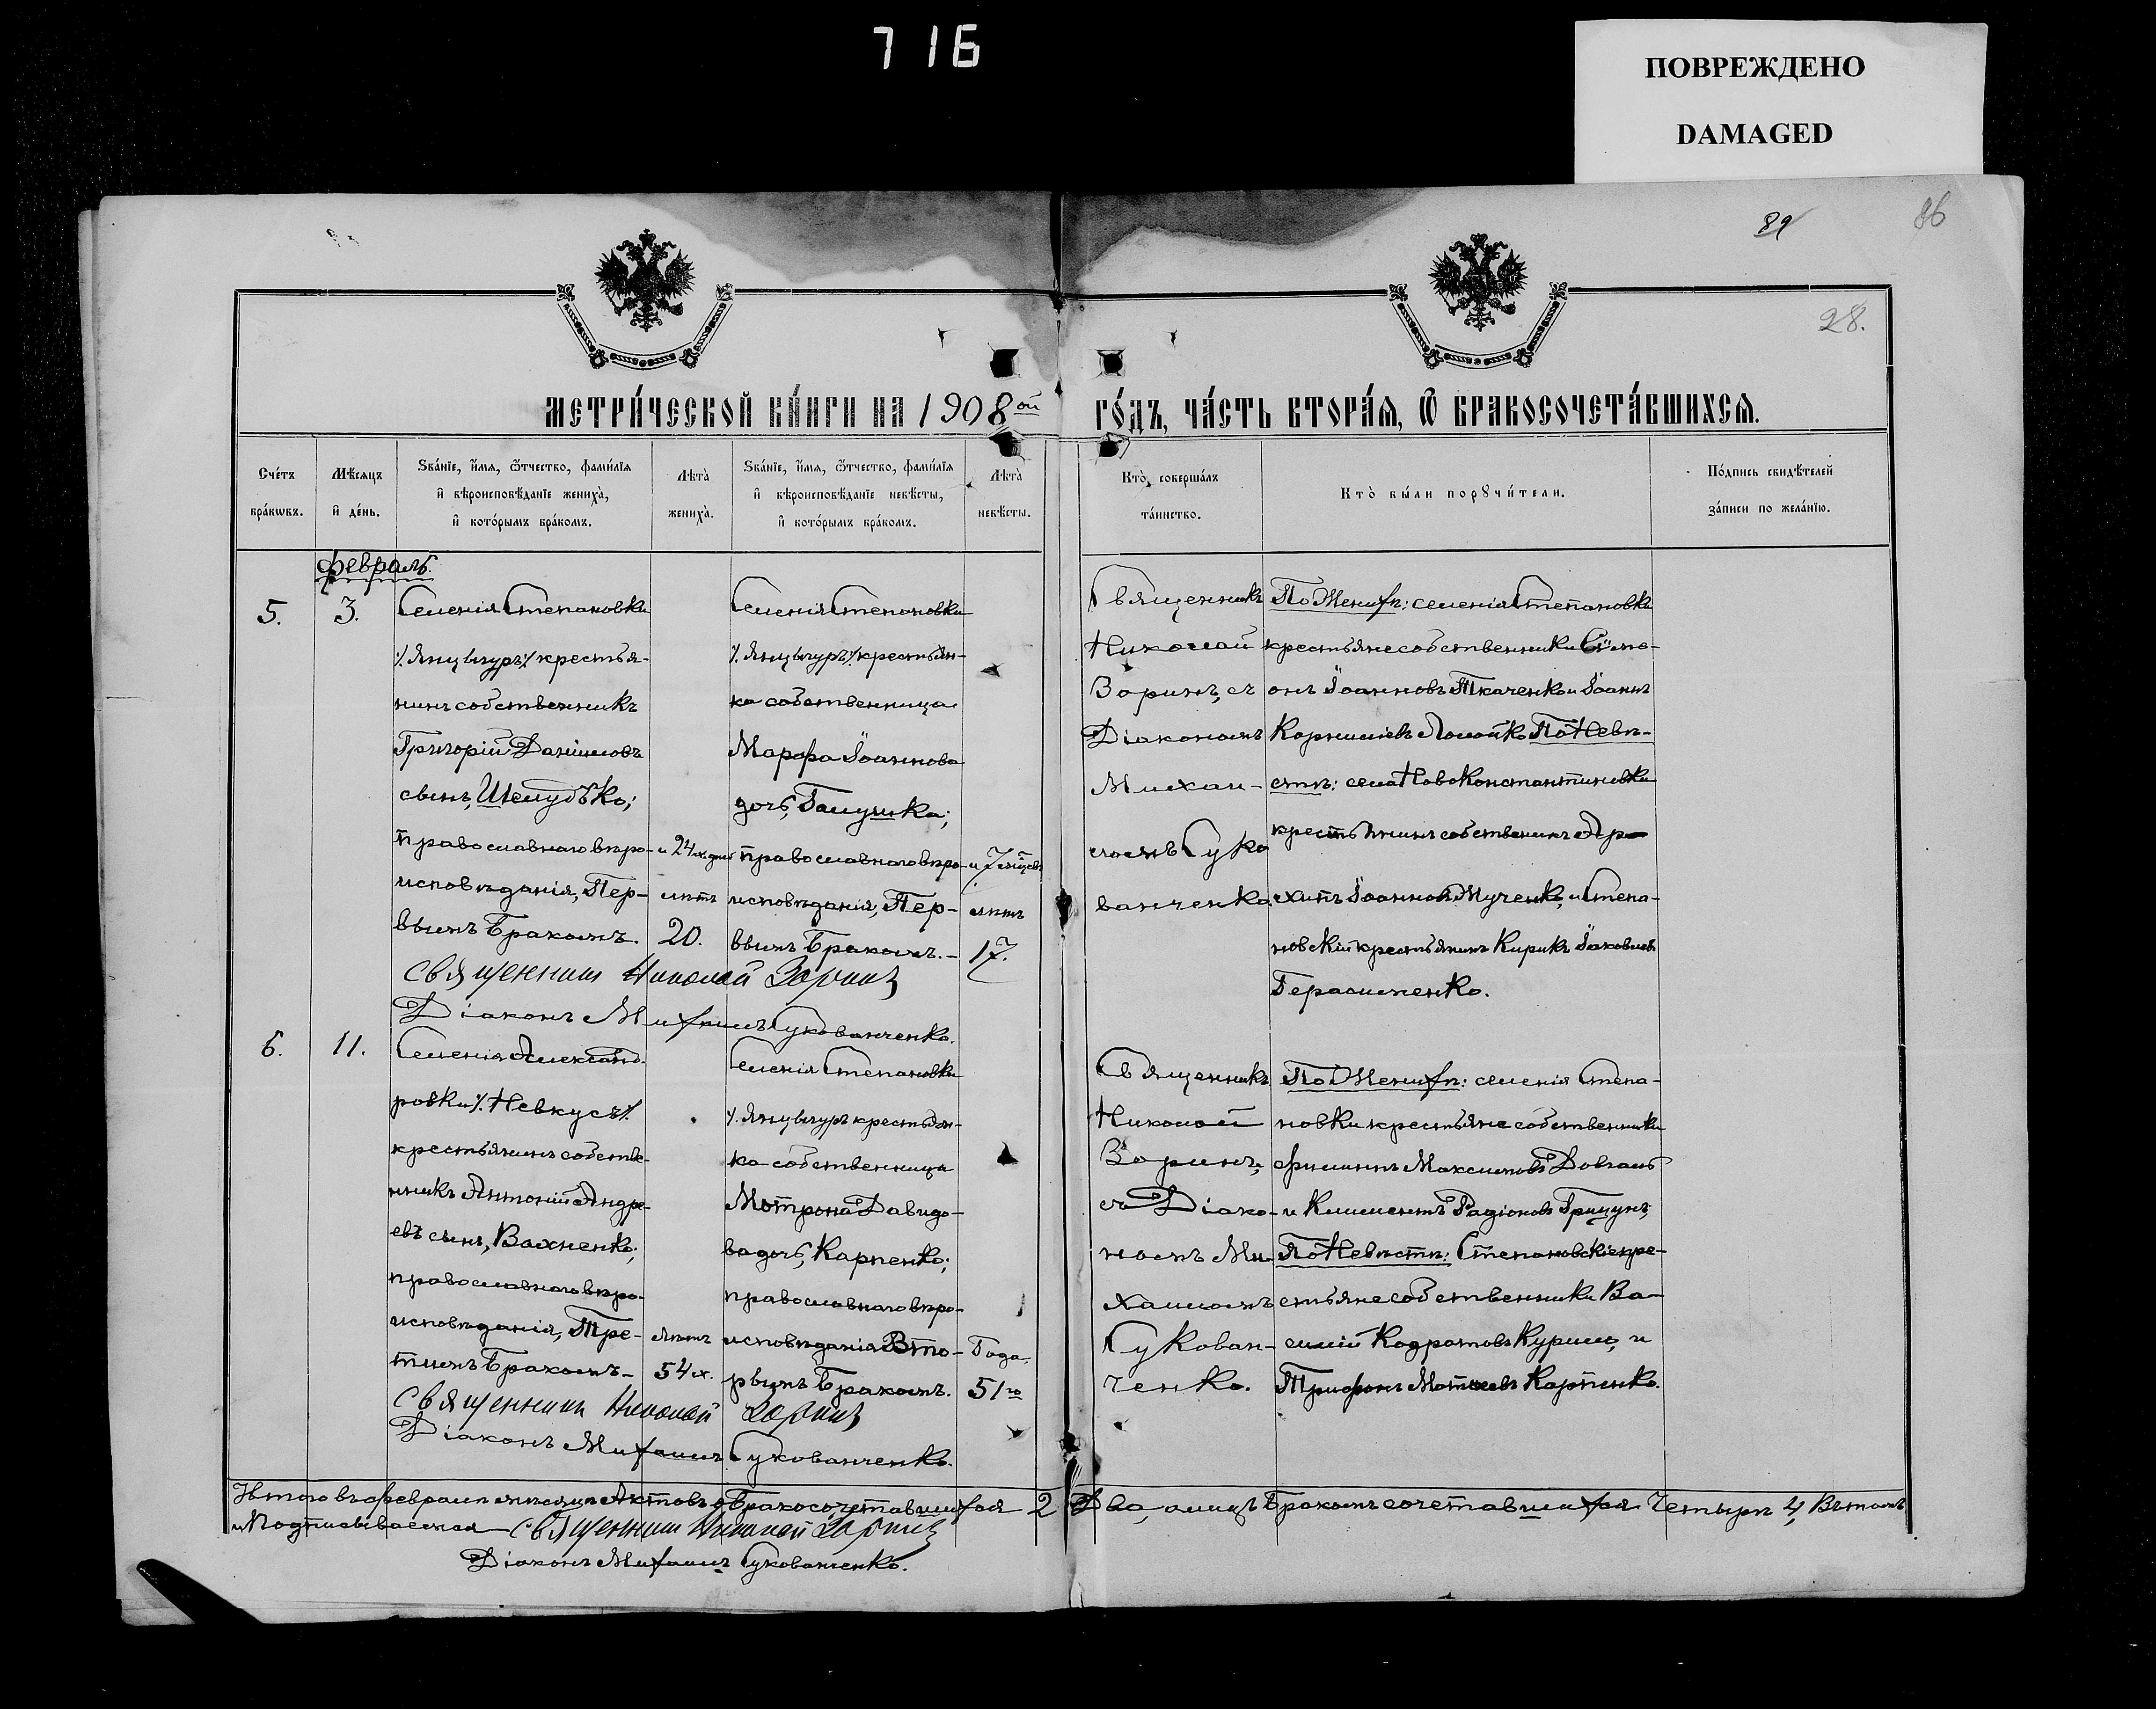 716
ПОВРЕЖДЕНО
DAMAGED
89
86
28.
МЕТРИ́ЧЕСКОЙ КНИ́ГИ НА 1908ой
ГО́ДЪ, ЧА́СТЬ ВТОРА́Я, Ѿ БРАКОСОЧЕТА́ВШИХСЯ.
Сче́тъ
бра́кѡвъ.
Мѣ́сяцъ
и҆ де́нь.
Ѕва́нїе, и҆́мя, ѻ҆́тчество, фами́лїя
и҆ вѣроисповѣ́данїе жениха̀,
и҆ кото́рымъ бра́комъ.
Лѣта̀
жениха̀.
Ѕва́нїе, и҆́мя, ѻ҆́тчество, фами́лїя
и҆ вѣроисповѣ́данїе невѣ́сты,
и҆ кото́рымъ бра́комъ.
Лѣта̀
невѣ́сты.
Кто̀ соверша́лъ
та́инство.
Кто̀ бы́ли порꙋчи́тели.
По́дпись свидѣ́телей
за́писи по жела́нїю.
Февраль.
5.
3.
Селенія Степановки
/. Янцычуръ ./ крестья-
нинъ собственникъ
Григорій Даніиловъ
сынъ, Шемудько;
православнаго вѣро-
исповѣданія, Пер-
ввымъ Бракомъ.
лѣтъ
20.
Селенія Степановки
/. Янцычуръ ./ крестьян-
ка собственница
Марфа Іоаннова
дочь, Галушка;
православнаго вѣро-
исповѣданія, Пер-
ввымъ Бракомъ.-
и 7 мѣсяцевъ
лѣтъ
17.
Священникъ Николай Зоринъ
Діаконъ Михаилъ Сукованченко.
Священникъ
Николай
Зоринъ, съ
Діакономъ
Михаи-
ломъ Суко
ванченко.
По Женихѣ: селенія Степановки
крестьяне собственники Симе-
онъ Іоанновъ Ткаченко и Іоаннъ
Корниліевъ Ломойко По Невѣ-
стѣ: села Новоконстантиновки
крестьянинъ собственникъ Ар-
хипъ Іоанновъ Мученко, и Степа-
новскій крестьянинъ Кирикъ Іаковлевъ
Герасименко.
6.
11.
Селенія Александ-
ровки /. Невкусъ ./
крестьянинъ собстве-
нникъ Антоній Андре-
евъ сынъ, Вахненко;
православнаго вѣро-
исповѣданія, Тре-
тьимъ Бракомъ-
лѣтъ
54х.
Селенія Степановки
/. Янцычуръ крестьян-
ка собственница
Мотрона Давидо-
ва дочь, Карпенко;
православнаго вѣро-
исповѣданія Вто-
рымъ Бракомъ.
Года.
51го
Священникъ Николай Зоринъ
Діаконъ Михаилъ Сукованченко.
Священникъ
Николай
Зоринъ,
съ Діако-
номъ Ми-
хаиломъ
Сукован-
ченко.
По Женихѣ: селенія Степа-
новки крестьяне собственники
Филиппъ Максимовъ Довгань
и Климентъ Радіоновъ Грицунъ,
По Невѣстѣ: Степановскіе кре-
стьяне собственники Ва-
силій Кодратовъ Курило, и
Трифонъ Матвеевъ Карпенко.
Итого въ февралѣ мѣсяцѣ Актовъ о Бракосочетавшихся 2 Два, а лицъ Бракомъ сочетавшихся Четыре 4, Въ томъ
и Подписываемся Священникъ Николай Зоринъ
Діаконъ Михаилъ Сукованченко.